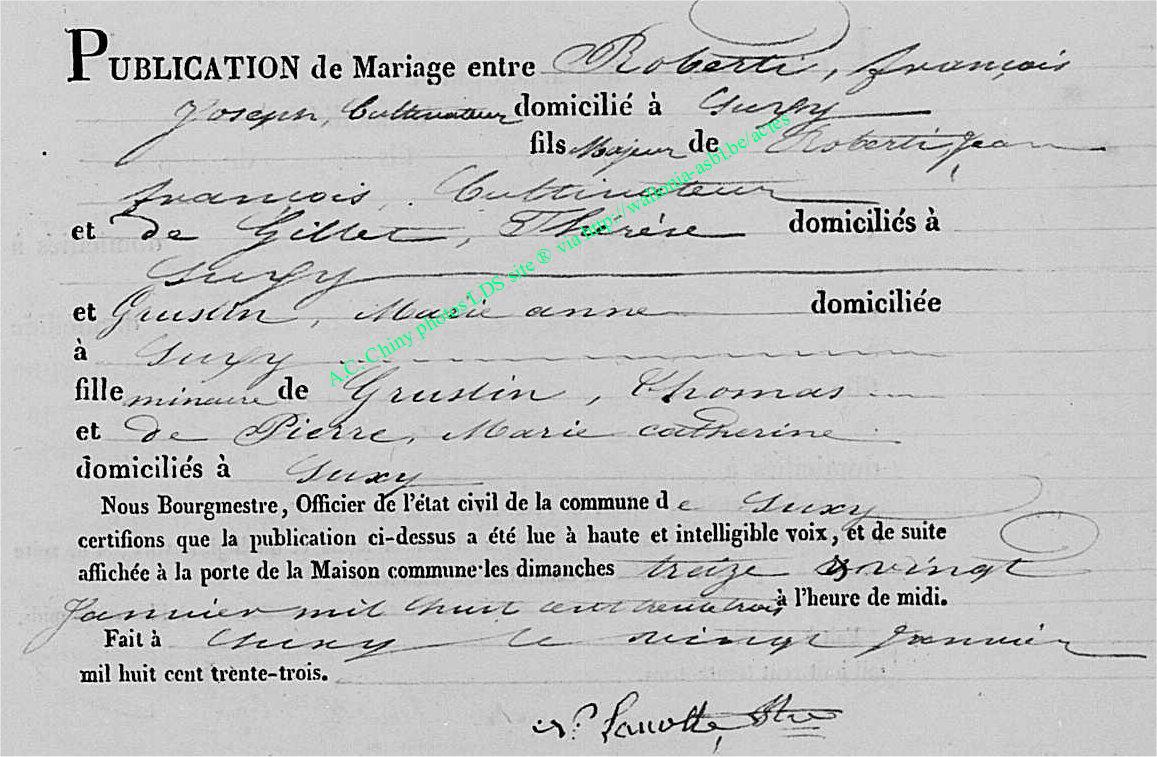 PUBLICATION de Mariage entre Roberti, françois
Joseph, Cultivateur domicilié à Suxy
fils Majeur de Roberti Jean
françois Cultivateur
et de Gillet, Thérèse domiciliés à
Suxy
et Grustin, Marie anne domiciliée
à Suxy
fille mineure de Grustin, Thomas
et de Pierre, Marie catherine
domiciliés à Suxy
Nous Bourgmestre, Officier de l'état civil de la commune de Suxy
certifions que la publication ci-dessus a été lue à haute et intelligible voix, et de suite
affichée à la porte de la Maison commune les dimanches treize & vingt
Janvier mil huit cent trente trois à l'heure de midi.
Fait à Suxy le vingt Janvier
mil huit cent trente-trois.
A.C. Chiny photos LDS site ® via http://wallonia-asbl.be/actes